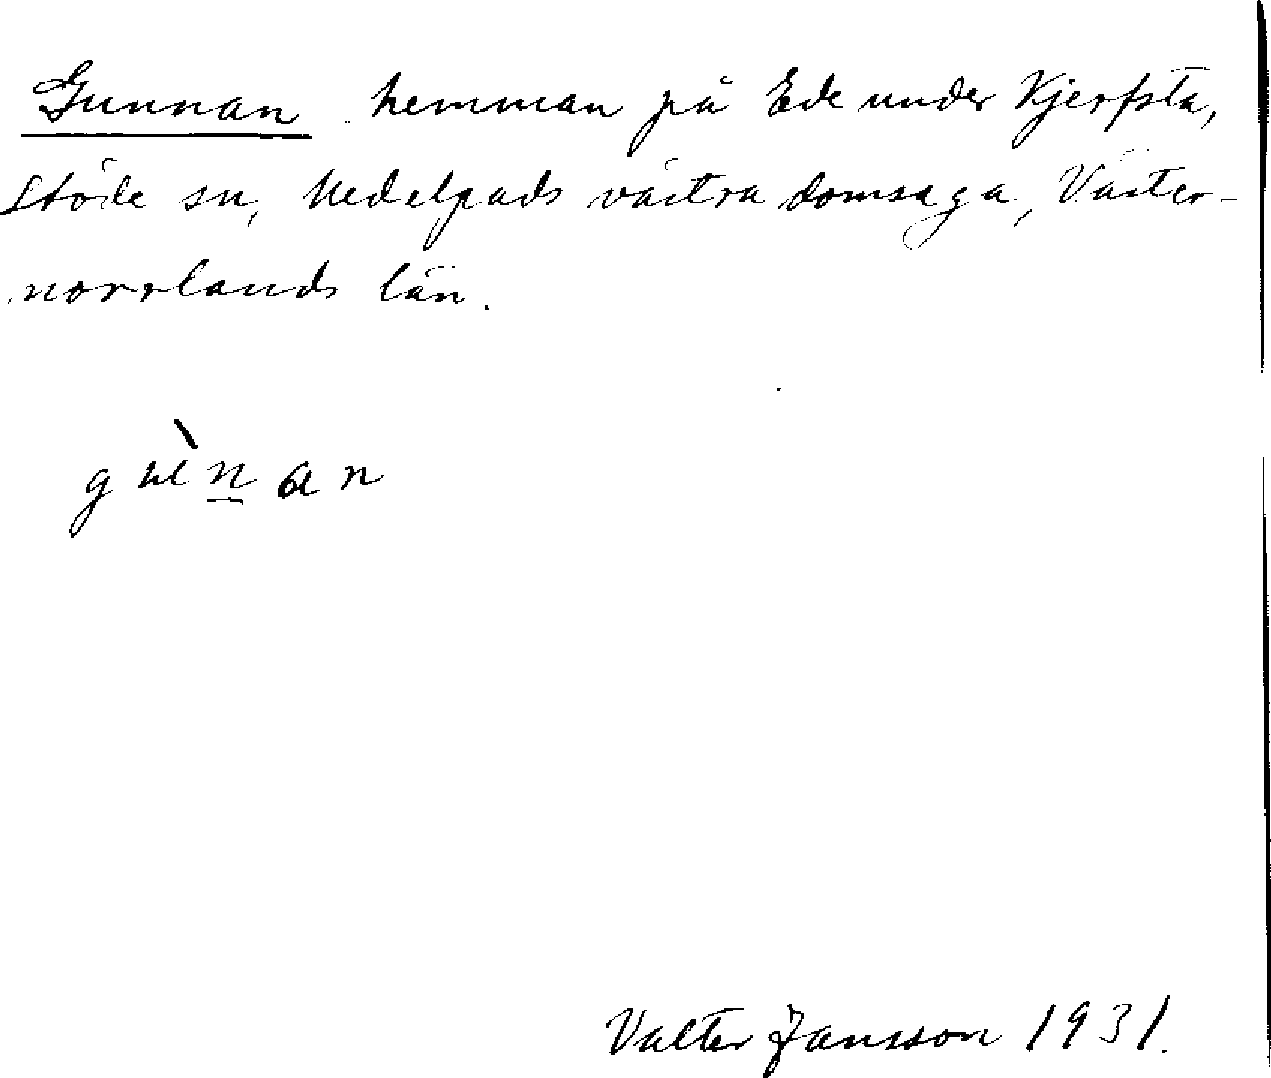 Gunnan hemman på Ede under Kjerfsta,
Stöde sn, Medelpads västra domsaga, Väster-
norrlands län.
gùnan
Valter Jansson 1931.